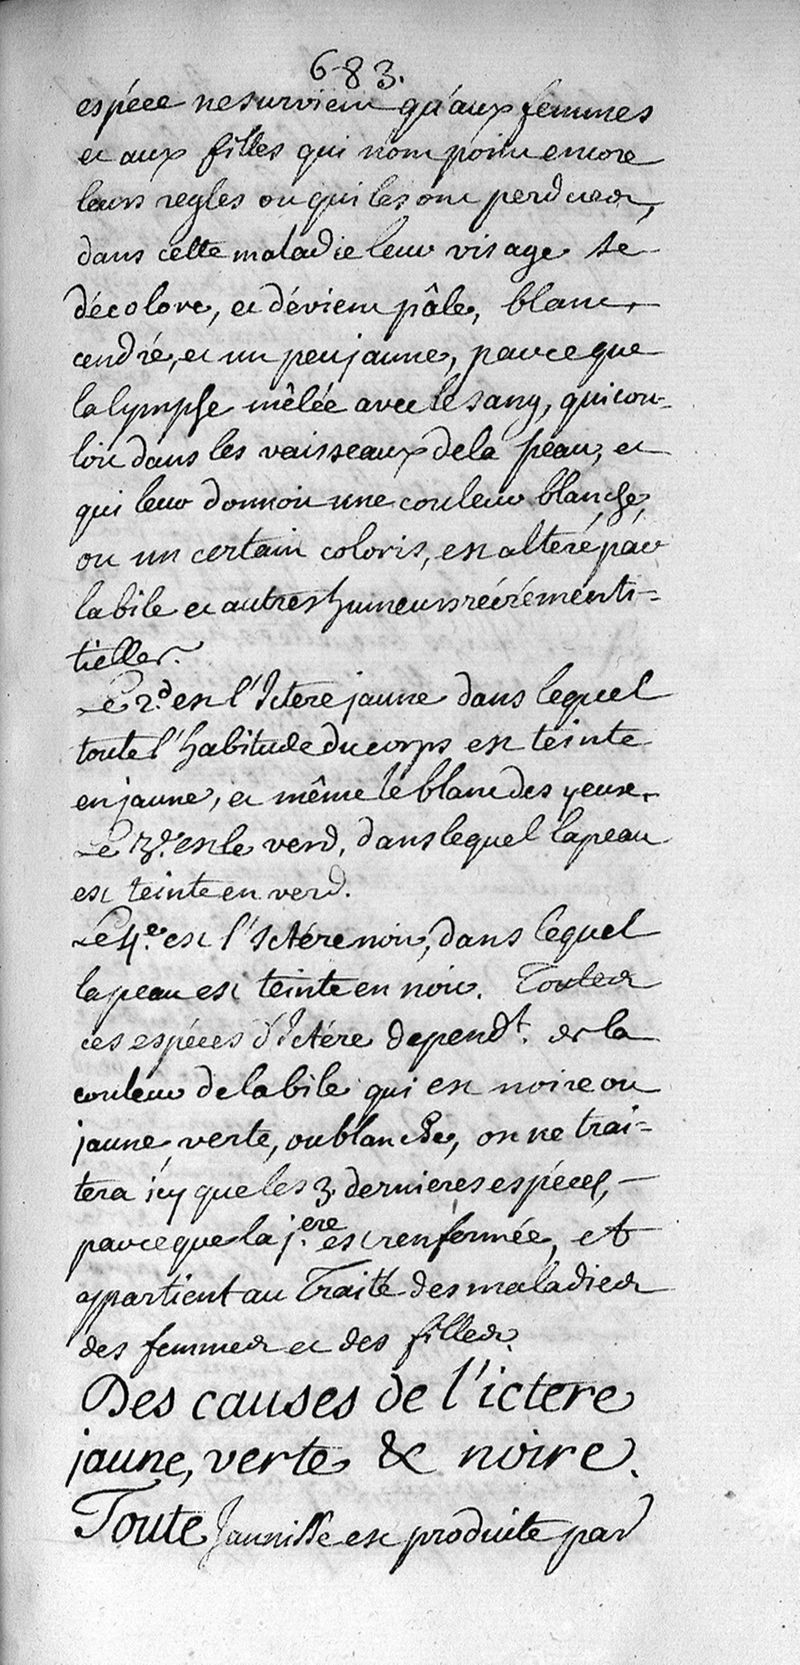 683.
espéce ne survient qu'aux femmes
et aux filles qui n'ont point encore
leurs regles ou qui les ont perdues,
dans cette maladie leur visage se
décolore, et dévient pâle, blanc,
cendré, et un peu jaune, parce que
la lymphe mêlée avec le sang, qui cou-
loit dans les vaisseaux de la peau, et
qui leur donnoit une couleur blanche,
ou un certain coloris, est alteré par
la bile et autres humeurs récrémenti=
tielles.
Le 2.d est l'Ictere jaune dans lequel
toute l'habitude du corps est teinte
en jaune, et même le blanc des yeux.
Le 3.e est le verd, dans lequel la peau
est teinte en verd.
Le 4.e est l'Ictére noir, dans lequel
la peau est teinte en noir. Toutes
ces espéces d'Ictére depend.t de la
couleur de la bile qui est noire ou
jaune, verte, ou blanche, on ne trai=
tera icy que les 3. dernieres espéces,
parce que la j.ere est renfermée, et
appartient au Traité des maladies
des femmes et des filles.
Des causes de l'ictere
jaune, verte & noire.
Toute Jaunisse est produite par